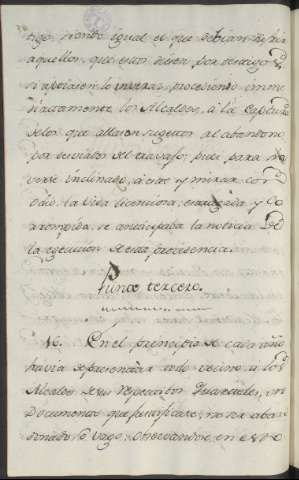 tigo, siendo igual el que debian sufrir
aquellos, que estos diesen por testigos, y
ni apoyasen lo inverso, procediendo inme
diactamente los Alcaldes, á la captura
de los que allasen sugetos al abandono
por servirse del travajo, pues para mo
verse inclinado, á este y mirar con
odio, la vida licenciosa, estragada y co
rrompida, se anticipaba la noticia de
la egecucion de esta providencia.
Punto tercero.
16. En el principio de cada año
havia de presentar todo vecino, a los
Alcaldes de sus respectivos Quarteles, un
Documento que justificase, no ser aban
donado, ó vago, observandose en esto